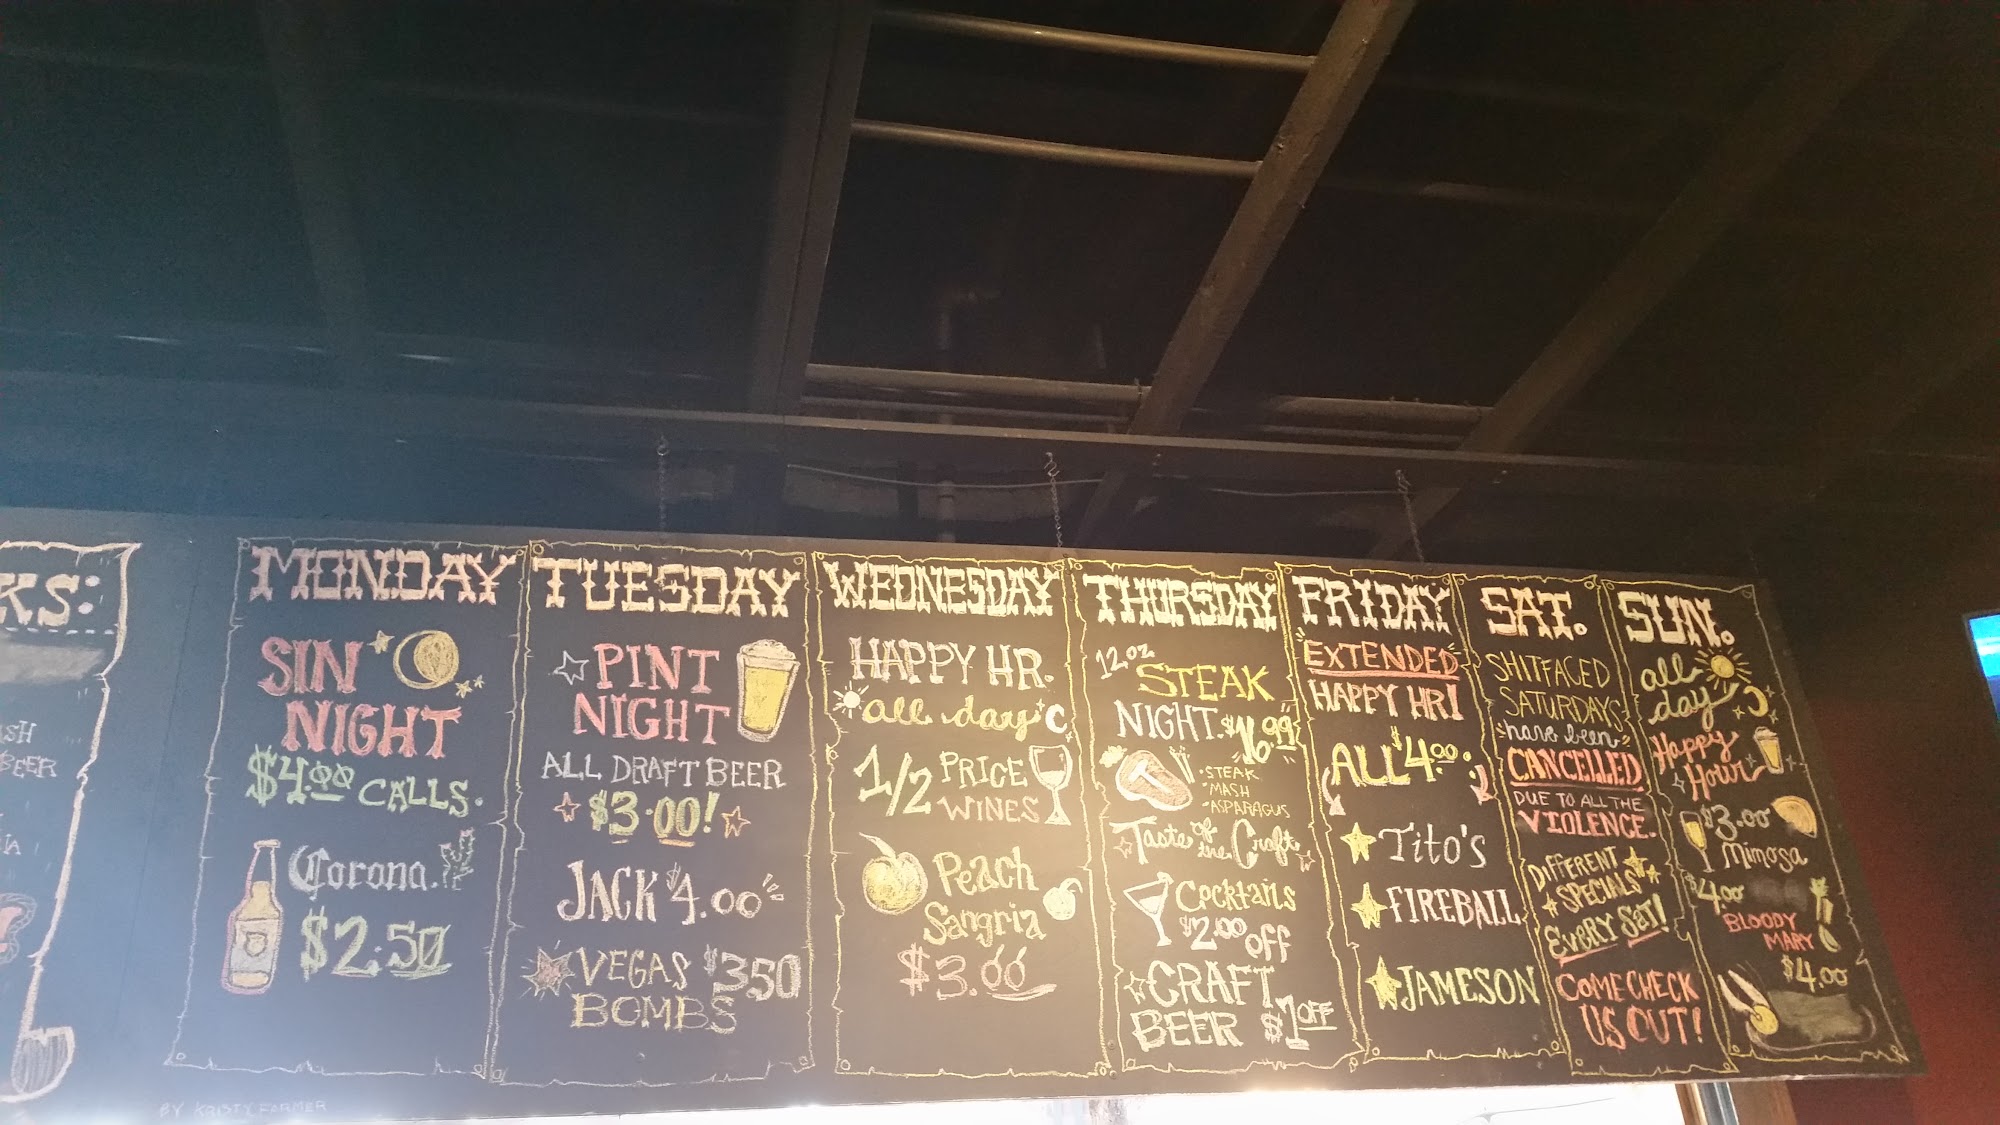 KS:
BEER
MONDAY
SIN
NIGHT
$4.00 CALLS.
Corona.
$2.50
BY KRISTY FARMER
TUESDAY
PINT
NIGHT
ALL DRAFT BEER
$3.00!
JACK $4.00
VEGAS $3.50
BOMBS
WEDNESDAY
HAPPY HR.
all day
1/2 PRICE
WINES
Peach
Sangria
$3.00
THURSDAY
12oz
STEAK
NIGHT $16.99
• STEAK
• MASH
• ASPARAGUS
Taste of
the Craft
Cocktails
$2.00 off
CRAFT
BEER $1 OFF
FRIDAY
EXTENDED
HAPPY HR!
ALL $4.00
Tito's
FIREBALL
JAMESON
SAT.
SHITFACED
SATURDAYS
have been
CANCELLED
DUE TO ALL THE
VIOLENCE.
DIFFERENT
SPECIALS
EVERY SAT!
COME CHECK
US OUT!
SUN.
all
day
Happy
Hour
$3.00
Mimosa
$4.00
BLOODY
MARY
$4.00